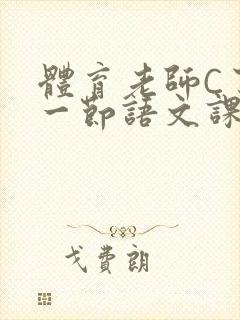 體育老師C
一節語文課
戈費朗